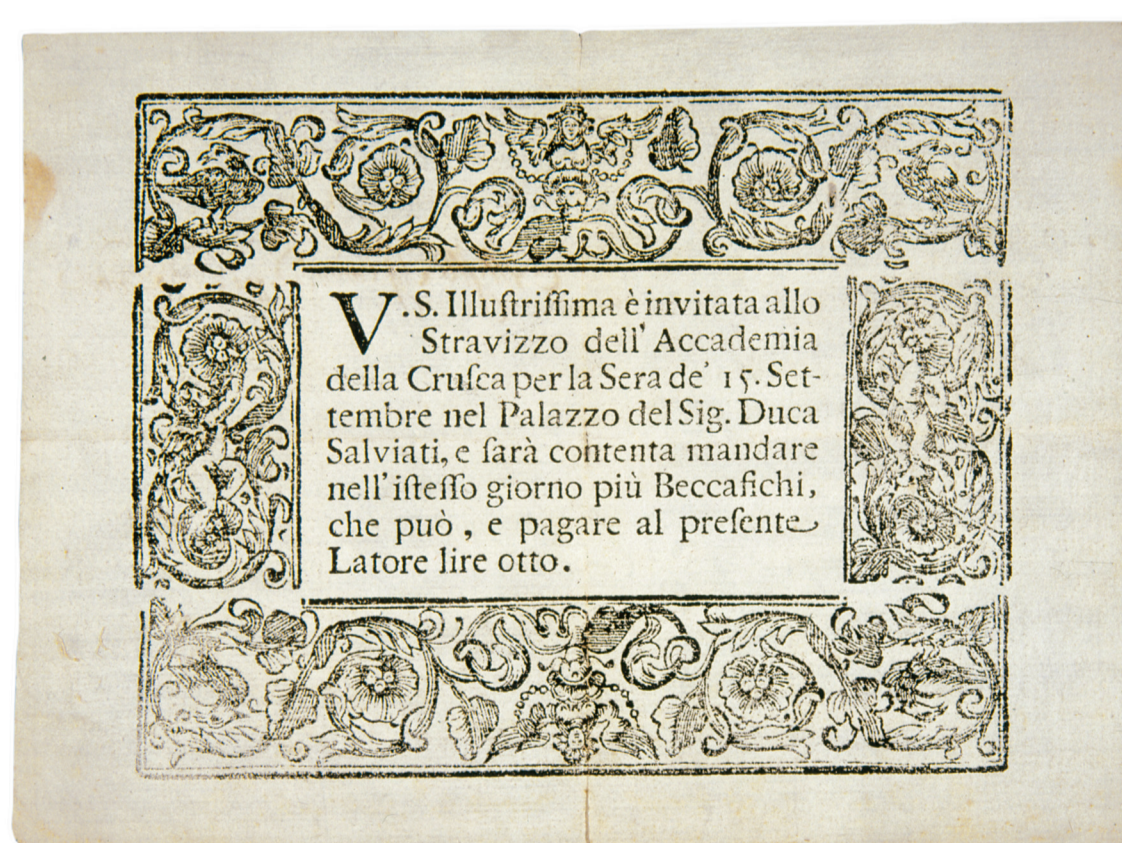 V.S. Illuſtriſſima è invitata allo
Stravizzo dell' Accademia
della Cruſca per la Sera de' 15. Set-
tembre nel Palazzo del Sig. Duca
Salviati, e ſarà contenta mandare
nell'iſteſſo giorno più Beccafichi,
che può, e pagare al preſente
Latore lire otto.